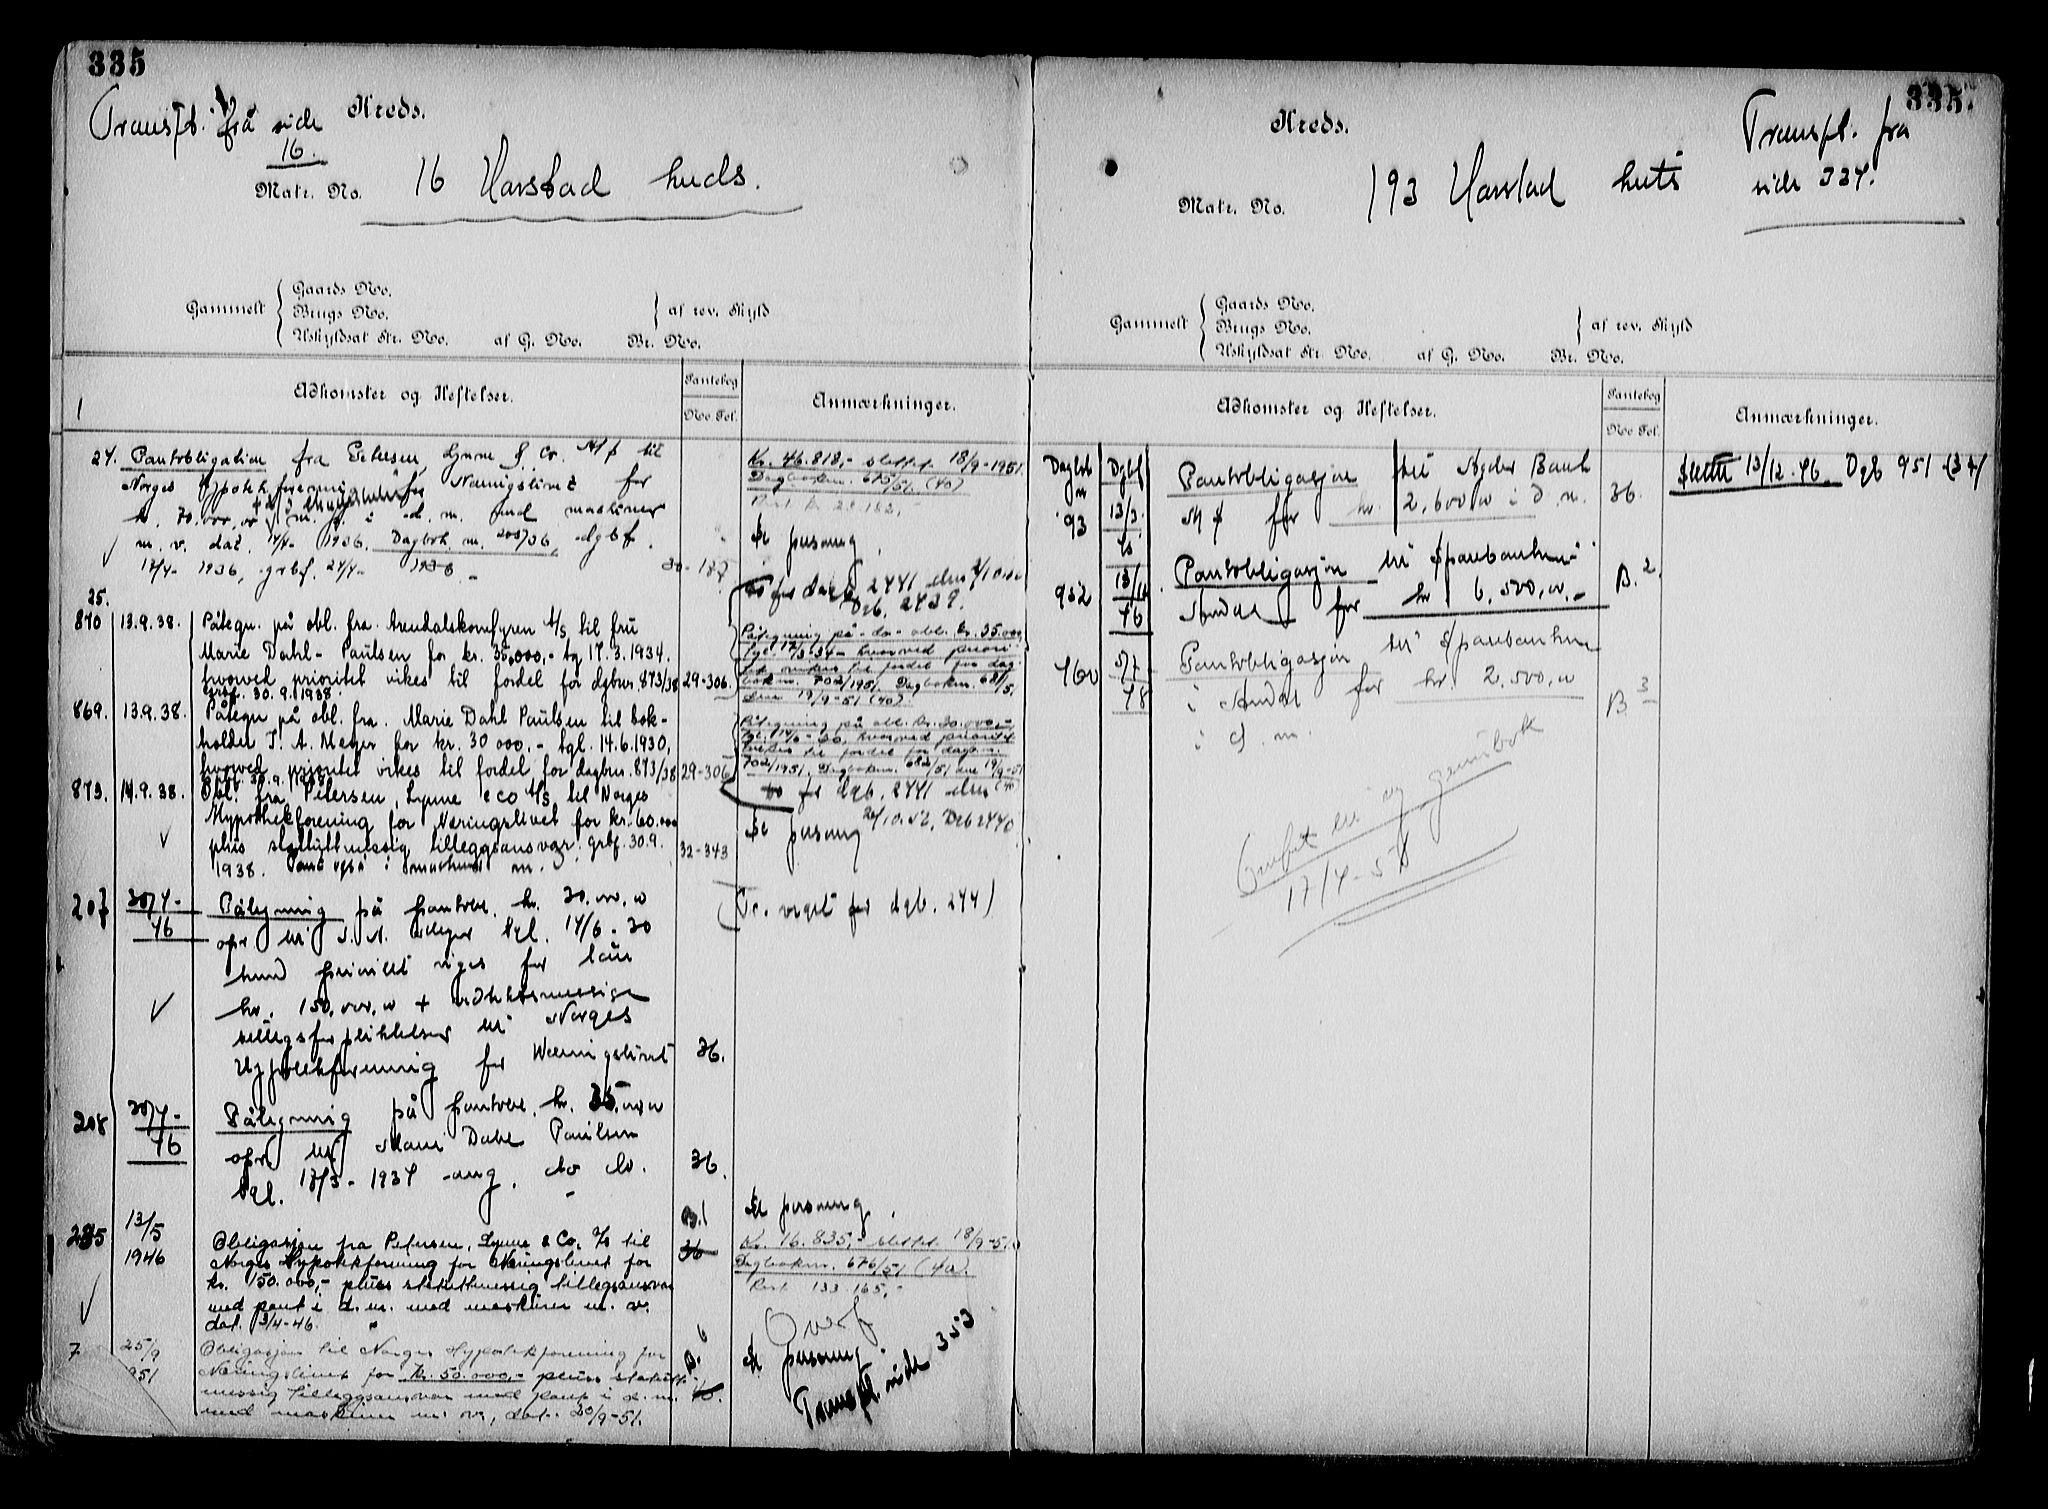 335
Transpt. fra side Kreds.
16.
Matr. No. 16 Harstad huds.
Gammelt
Gaards No.
Brugs No.
Uskyldsat Str. No. af G. No. Br. No.
af rev. Skyld
1
Adkomster og Heftelser.
Pantebog
No Fol.
Anmærkninger.
24. Pantobligation fra Petersen, Lynne & Co. A/S til
Norges Hypothekforening for Næringslivet for
kr. 70.000,00 i d. m. med maskiner
m. v. dat. 1936. Dagbok nr. 205/36, dgbf.
17/4- 1936, grbf. 24/4- 1936. 30-187
25.
870 13.9.38. Påtegn. på obl. fra Arendalskornfyren A/S til fru
Marie Dahl-Paulsen for kr. 35,000,- tg. 17.3.1934.
hvorved prioritet vikes til fordel for dgbnr. 873/38 29-306.
Grbf. 30.9.1938.
869. 13.9.38. Påtegn på obl. fra Marie Dahl Paulsen til bok-
holder J. A. Meyer for kr. 30 000.- tgl. 14.6.1930,
hvorved prioritet vikes til fordel for dagbnr. 873/38 29-306
30.9.1938
873. 14.9.38. Obl. fra Petersen, Lynne & Co A/S til Norges
Hypothekforening for Næringslivet for kr. 60.000
plus statuttmessig tilleggsansvar, grbf. 30.9. 32-343
1938. Pant også i maskiner m.
207 30/4- Påtegning på pantobl. kr. 30.000,00
46 opr til J. A. Meyer tgl. 14/6-30
hvorved prioritet viges for lån
kr. 150.000,00 +
tilleggsforpliktelser til Norges
Hypotekforening for Næringslivet 36.
208 30/4- Påtegning på pantobl. kr. 35.000
46 opr til Marie Dahl Paulsen
tgl. 17/3-1934 -ang. do do. 36.
285 13/5 B.1
1946 Obligasjon fra Petersen, Lynne & Co. A/S til 36
Norges Hypotekforening for Næringslivet for
kr. 150.000,- pluss statuttmessig tilleggsansvar
med pant i d. m. med maskiner m. v.
dat. 3/4-46.
7 25/9 Obligasjon til Norges Hypotekforening for B. 6
951 Næringslivet for kr. 50.000,- pluss statutt-
messig tilleggsansvar med pant i d. m. 40.
med maskiner m. v., dat. 20/9-51.
Kr. 46.818,- slettet 18/9-1951.
Dagboknr. 675/51. (40)
Rest kr 23.182,-
Påtegning på -do- obl. kr. 35.000,
tgl. 17/3-34- hvorved priori-
tet vikes til fordel for dag-
bok nr. 702/1951. Dagboknr. 681/5,
den 19/9-51 (40).
Påtegning på obl. kr. 30.000,-
tgl. 14/6-30, hvorved prioritet
vikes til fordel for dagb.nr.
702/1951. Dagboknr. 682/51 den 19/9-51
do for dgb. 2441
20/10.52, Dgb 2440
Pr. veget for dgb. 244)
Kr. 16.835,- slettet 18/9-51.
Dagboknr. 676/51 (40).
Rest 133.165,-
Overf
Transpt. side 353
335.
Kreds.
Transpt. fra
side 334.
Matr. No. 193 Harstad huts
Gammelt
Gaards No.
Brugs No.
Uskyldsat Str. No. af G. No. Br. No.
af rev. Skyld
Adkomster og Heftelser.
Pantebog
No Fol.
Anmærkninger.
Dagbok Dgbf
93 13/3. Pantobligasjon til Agder Bank
A/S for kr. 2,600,00 i d. m. 36.
Slettet 13/12.46. Dgb 951 (37)
952 13/12 Pantobligasjon til Sparebanken
46 Arendal for kr 6,500,00.- B.2.
760 5/7 Pantobligasjon til Sparebanken
48 i Arendal for kr. 2.500,00 B 3
i d. m.
17/4-58